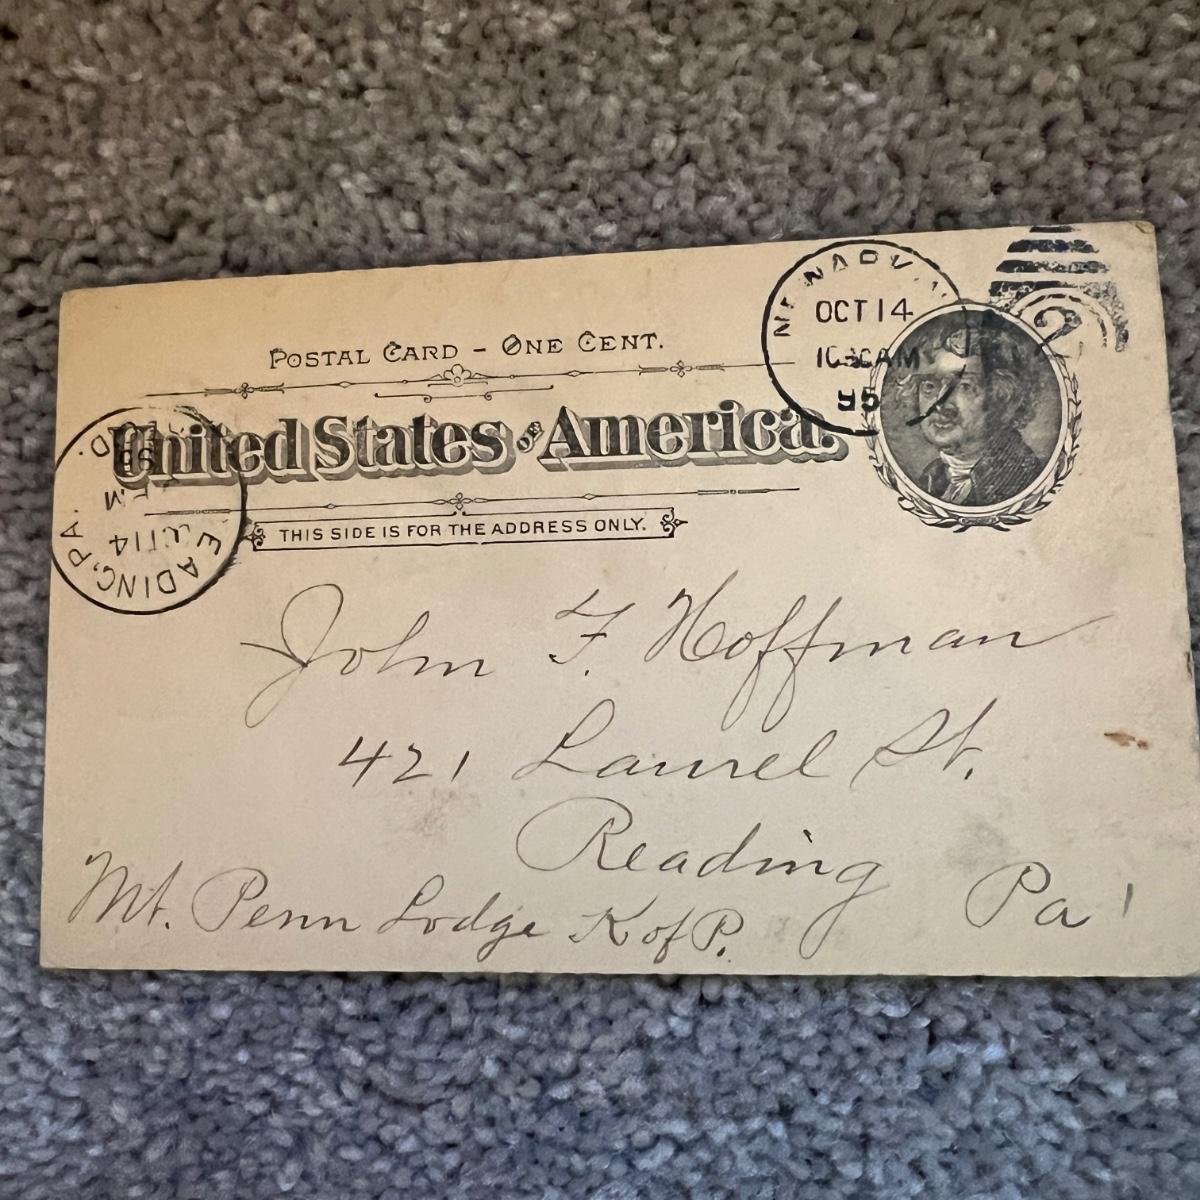 POSTAL CARD - ONE CENT.
United States of America.
THIS SIDE IS FOR THE ADDRESS ONLY.
OCT 14
AM
95
2
READING, PA.
OCT 14
PM
95
D.
John F. Hoffman
421 Laurel St.
Reading Pa
Mt. Penn Lodge K of P.